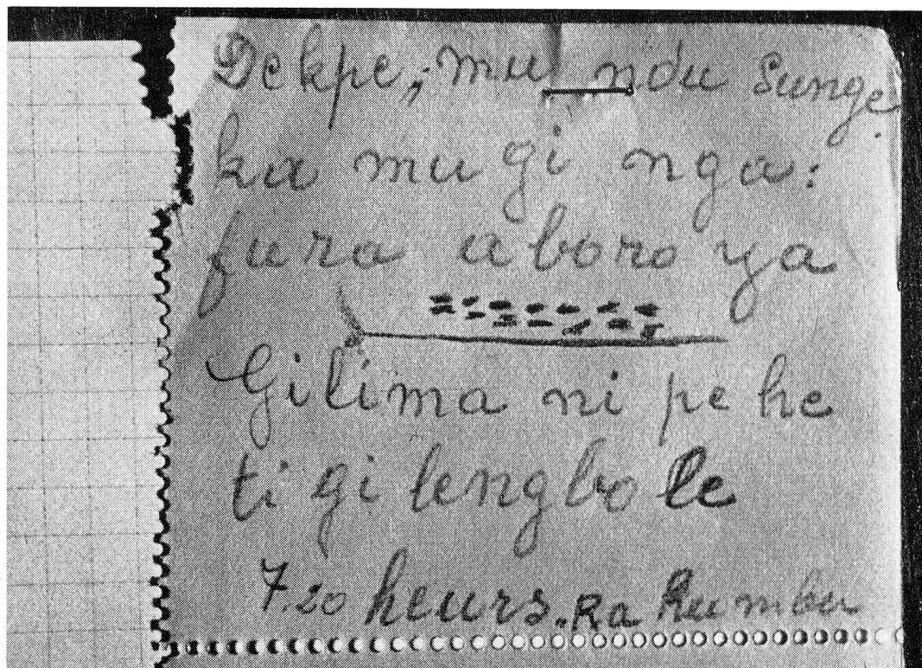 Dekpe, mu ndu sunge
ka mu gi nga:
fura aboro ya
Gilima ni pe he
ti gi lengbo le
7.20 heurs. Ra Rumbu